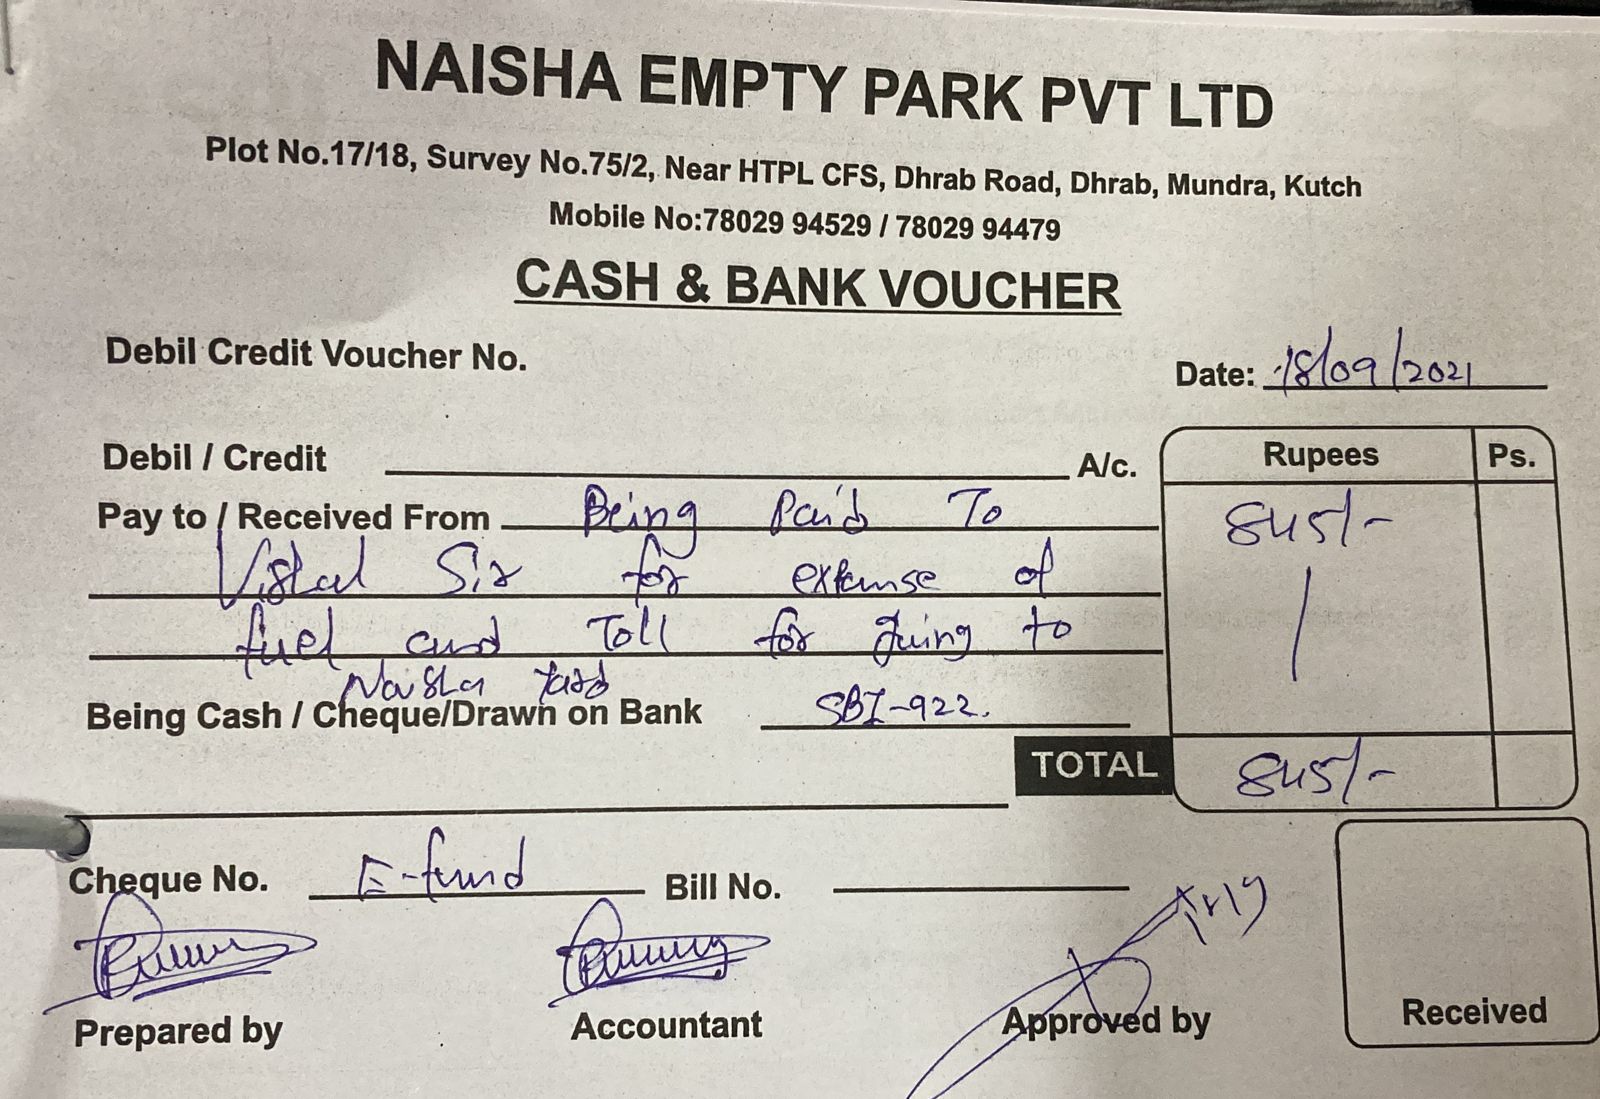 NAISHA EMPTY PARK PVT LTD
Plot No.17/18, Survey No.75/2, Near HTPL CFS, Dhrab Road, Dhrab, Mundra, Kutch
Mobile No:78029 94529 / 78029 94479
CASH & BANK VOUCHER
Debil Credit Voucher No.
Date: 18/09/2021
Debil / Credit A/c.
Rupees Ps.
Pay to / Received From Being Paid To
845/-
Vishal Sir for expense of
fuel and Toll for going to
Naisha Yard
Being Cash / Cheque/Drawn on Bank SBI-922.
TOTAL 845/-
Cheque No. E-fund Bill No.
Prepared by Accountant Approved by Received